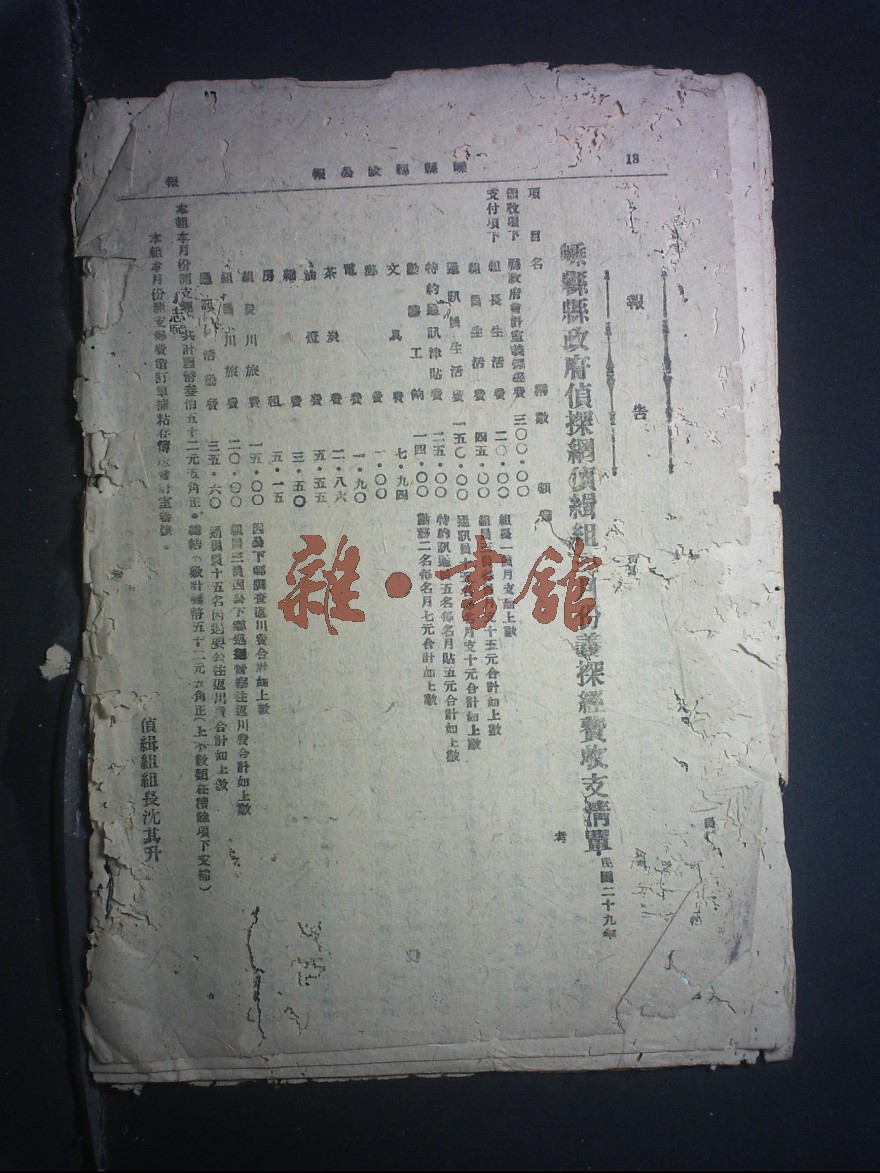 18
嵊縣縣政公報
報告
嵊縣縣政府偵探網偵緝組 月份諜探經費收支清單 民國二十九年
項目名稱 數額 備考
領收項下 縣政府會計室 諜探經費 三〇〇·〇〇
支付項下 組長生活費 二〇·〇〇 組長一員月支如上數
組員生活費 四五·〇〇 組員三員每名月支十五元合計如上數
通訊員生活費 一五〇·〇〇 通訊員十五名每名月支十元合計如上數
特約通訊津貼費 二五·〇〇 特約訊通 五名每名月貼五元合計如上數
勤務工餉 一四·〇〇 勤務二名每名月七元合計如上數
文具費 七·九四
郵費 一·〇〇
電費 一·九〇
茶炭費 二·八六
油燈費 五·五五
費 三·五〇
房租 五·一五
組長川旅費 一五·〇〇 因公下鄉調查返川費合計如上數
組員川旅費 二〇·〇〇 組員三員因公下鄉 督察往返川費合計如上數
通訊員活動費 三五·六〇 通訊員十五名因 要公往返川費合計如上數
本組本月份開支 共計國幣叁佰五十二元五角正·總結 敷計國幣五十二元五角正(上 數額在積餘項下支給)
本組本月份開支 費 訂單據粘存簿送會計室審核。
偵緝組組長沈其升
雜·書館